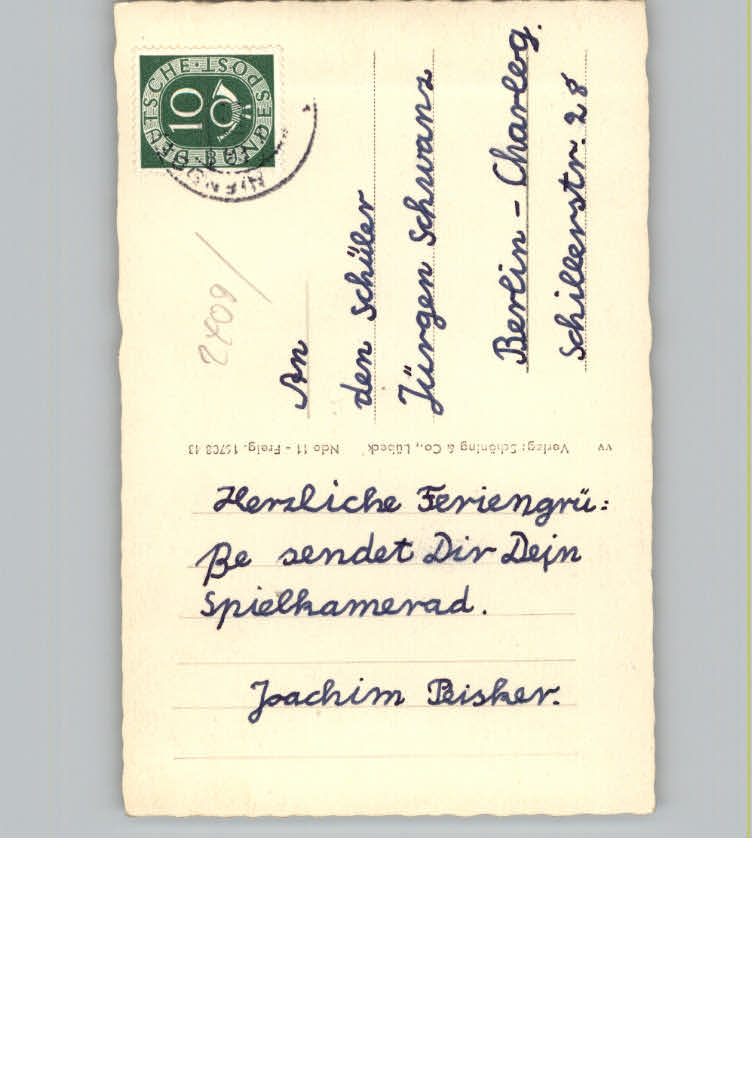 DEUTSCHE BUNDESPOST
10
2409/
An
den Schüler
Jürgen Schwanz
Berlin - Charlbg.
Schillerstr. 28
vv Verlag: Schöning & Co., Lübeck Ndo 11 - Freig. 15703 43
Herzliche Feriengrü=
ße sendet Dir Dein
Spielkamerad.
Joachim Peisker.